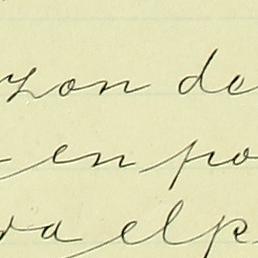 zon de
en po
da el p